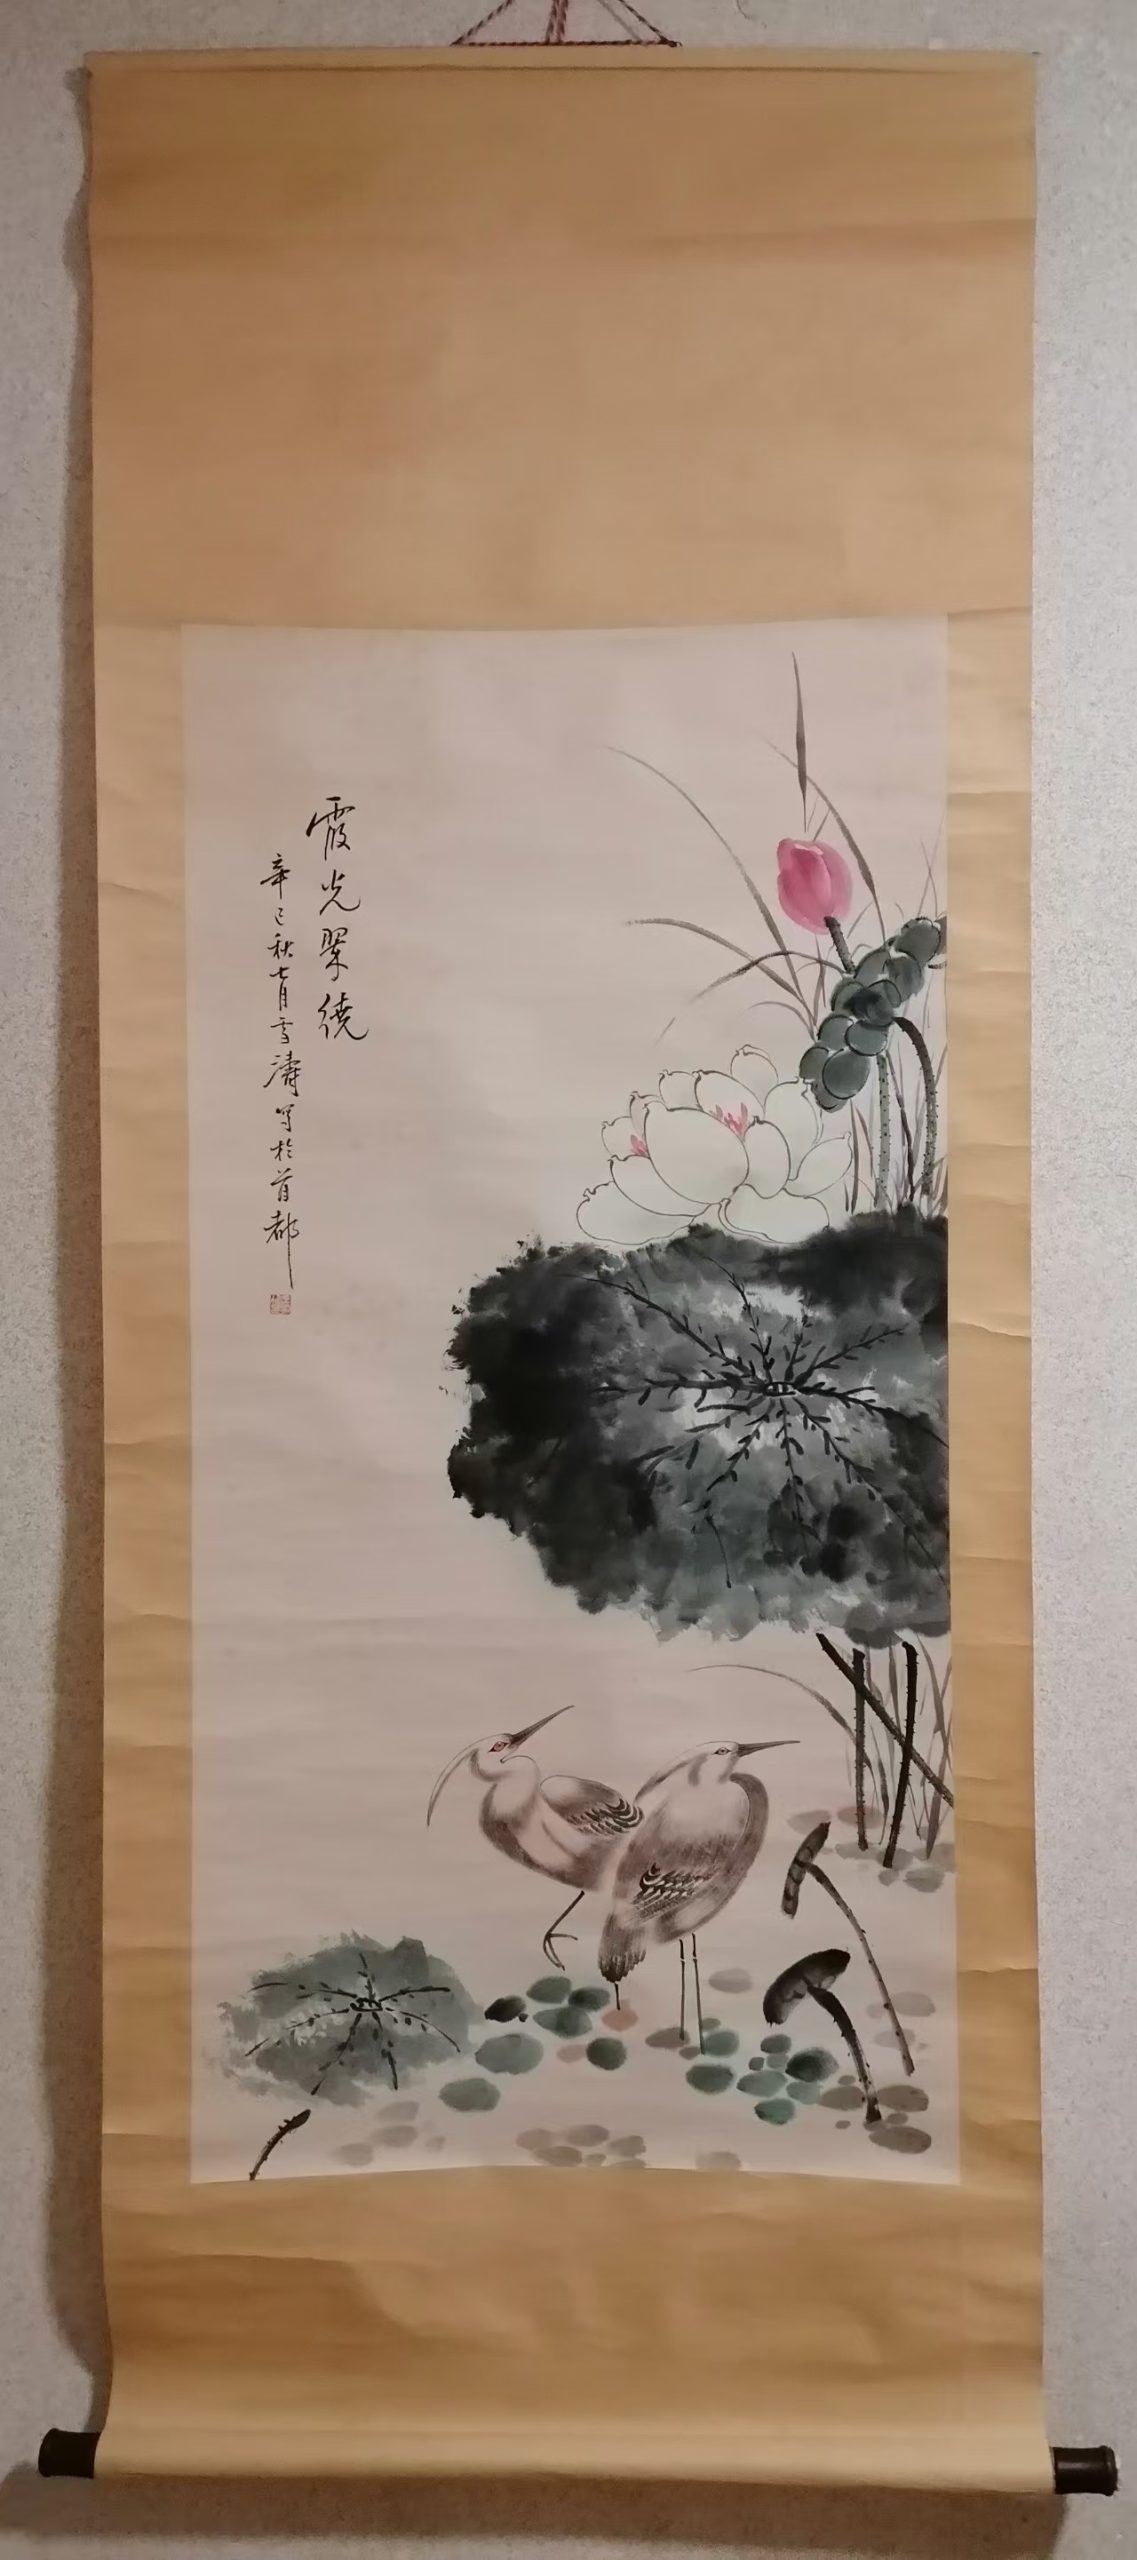 霞光翠繞
辛巳秋七月雪濤写於首都